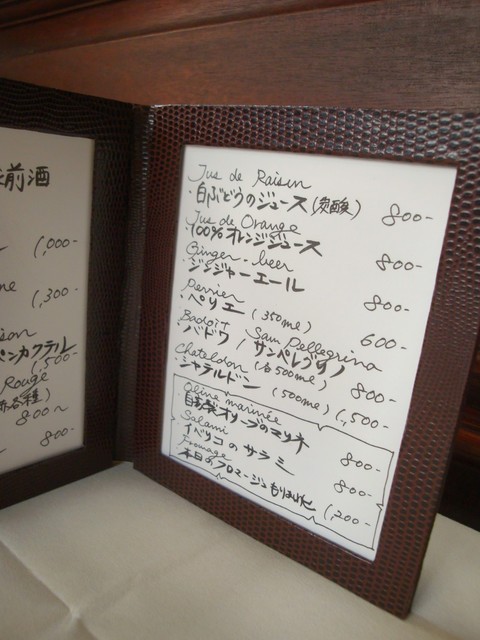 前酒
1,000-
me
1,300-
ison
ペンカクテル
1,500-
Rouge
800~
800-
Jus de Raisin
・白ぶどうのジュース(炭酸) 800-
Jus de Orange
・100%オレンジジュース 800-
Ginger-beer
・ジンジャーエール 800-
Perrier
・ペリエ (350ml) 600-
Badoit San Pellegrina
・バドワ / サンペレグリノ (各500ml) 800-
Chateldon
・シャテルドン (500ml) 1,500-
Olive marinée
・自家製オリーブのマリネ 800-
Salami
・イベリコのサラミ 800-
Fromage
・本日のフロマージュもりあわせ 1,200-